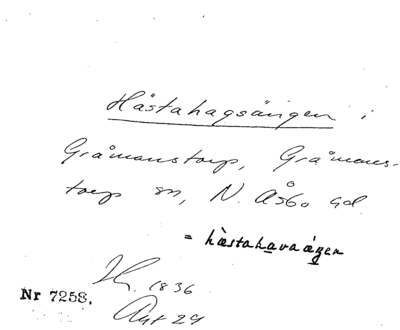 Hästahagsängen i
Gråmanstorp, Gråmans-
torp sn, N. Åsbo hd.
= hästahavaángen
H. 1836
Nr 7258.
Akt 29